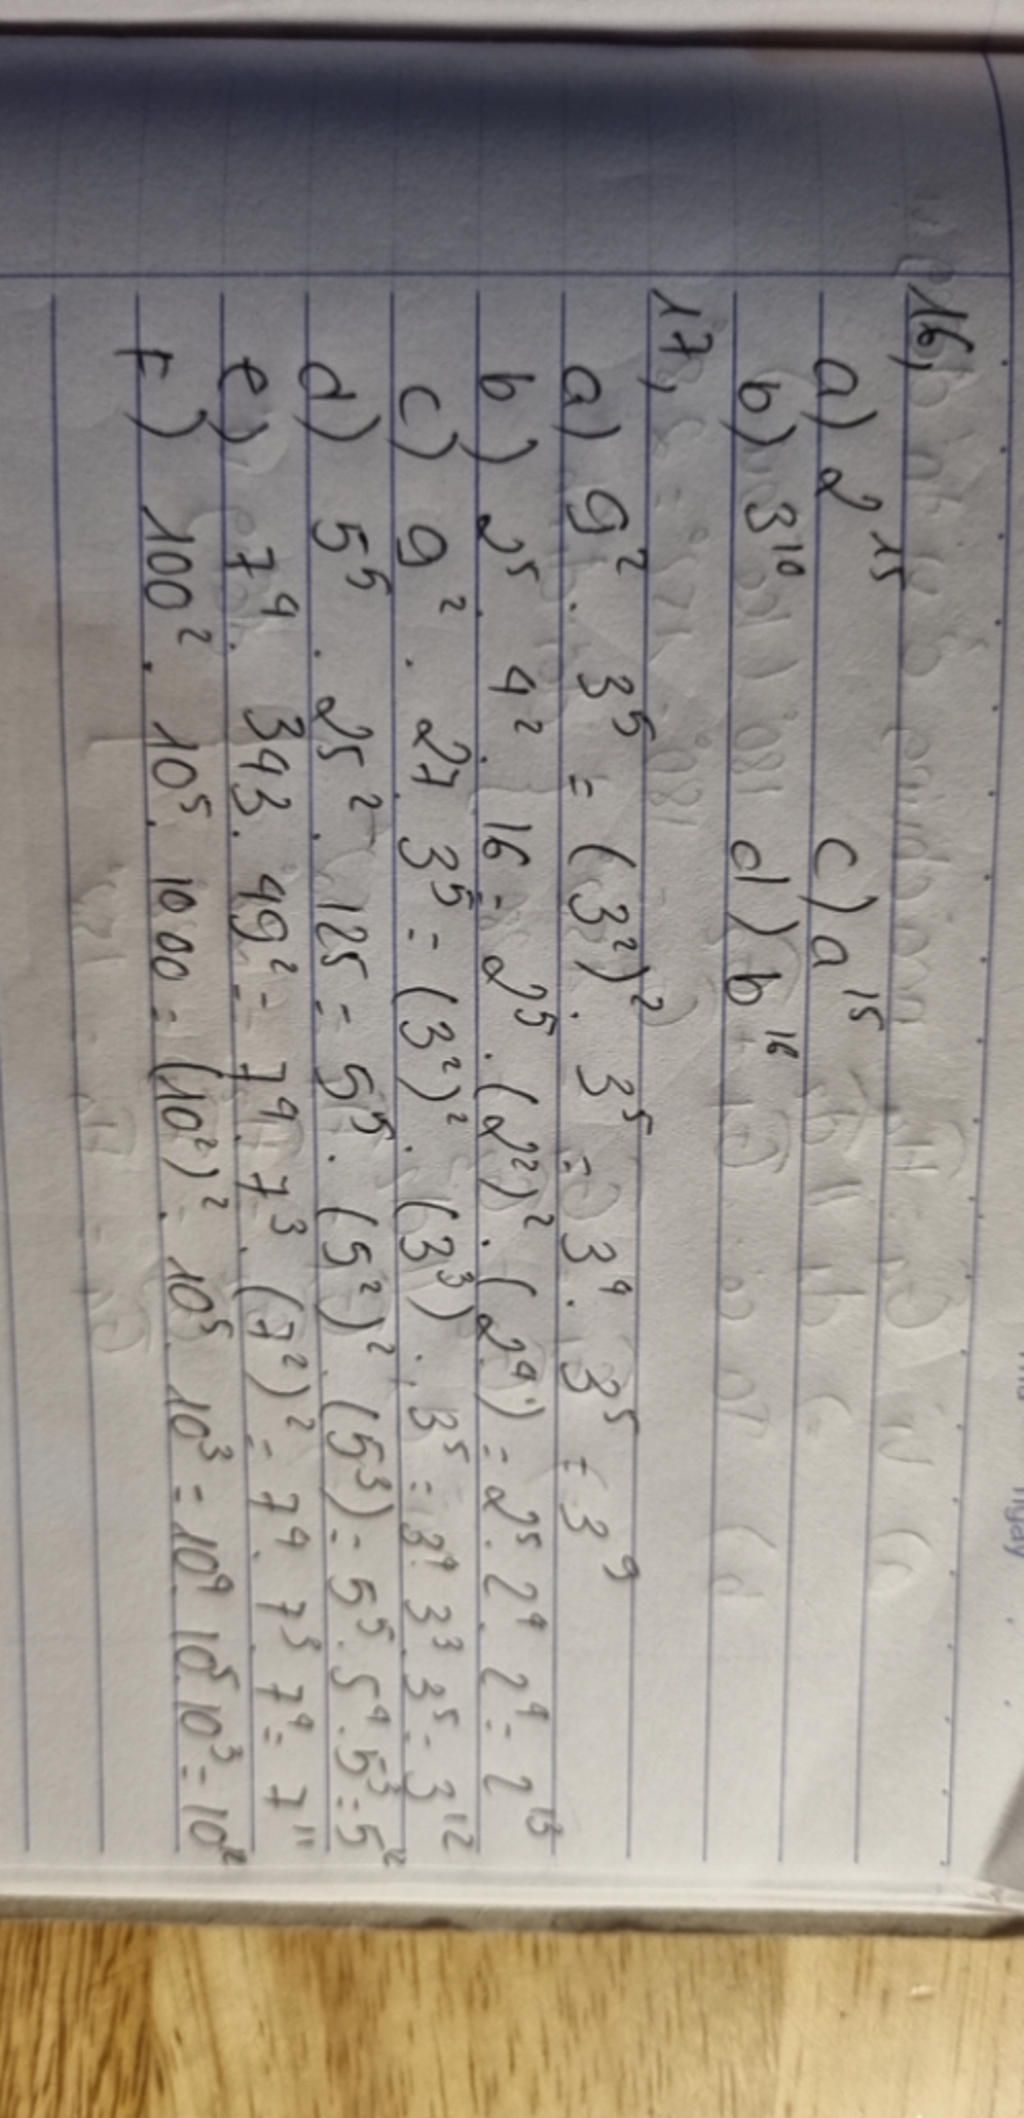 16,
a) 2¹⁵ c) a¹⁵
b) 3¹⁰ d) b¹⁶
17,
a) 9² . 3⁵ = (3²)² . 3⁵ = 3⁴ . 3⁵ = 3⁹
b) 2⁵ . 4² . 16 = 2⁵ . (2²)² . (2⁴) = 2⁵ . 2⁴ . 2⁴ = 2¹³
c) 9² . 27 . 3⁵ = (3²)² . (3³) . 3⁵ = 3⁴ . 3³ . 3⁵ = 3¹²
d) 5⁵ . 25² . 125 = 5⁵ . (5²)² . (5³) = 5⁵ . 5⁴ . 5³ = 5¹²
e) 7⁴ . 343 . 49² = 7⁴ . 7³ . (7²)² = 7⁴ . 7³ . 7⁴ = 7¹¹
f) 100² . 10⁵ . 1000 = (10²)² . 10⁵ . 10³ = 10⁴ . 10⁵ . 10³ = 10¹²
Ngày